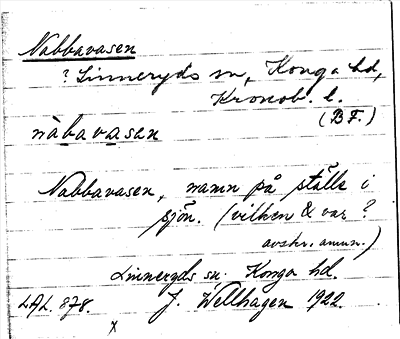 Nabbavasen
? Linneryds sn, Konga hd,
Kronob. l.
(BF.)
nàbavasen
Nabbavasen, namn på ställe i
sjön. (vilken & var ?
avskr. anm.)
Linneryds sn. Konga hd.
LAL. 878. J. Wellhagen 1922.
x